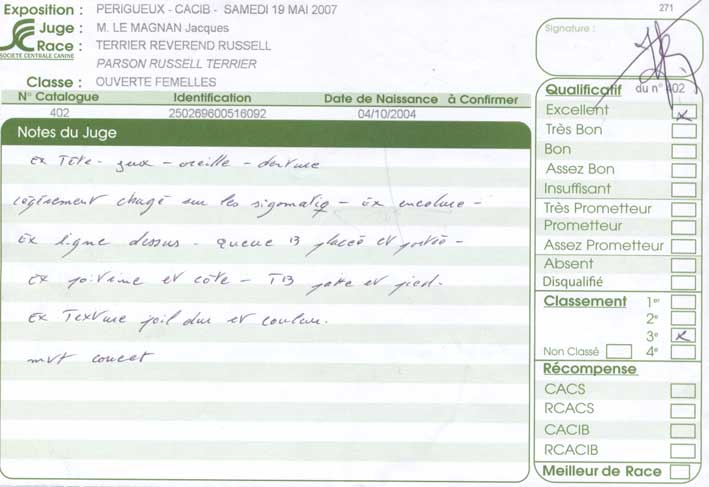 Exposition : PERIGUEUX - CACIB - SAMEDI 19 MAI 2007
271
Juge : M. LE MAGNAN Jacques
Race : TERRIER REVEREND RUSSELL
PARSON RUSSELL TERRIER
SOCIÉTÉ CENTRALE CANINE
Classe : OUVERTE FEMELLES
N° Catalogue Identification Date de Naissance à Confirmer
402 250269600516092 04/10/2004
Notes du Juge
Ex Tête - yeux - oreille - denture
légèrement chargé sur les zigomatiq - Ex encolure -
Ex ligne dessus - queue TB placée et portée -
Ex poitrine et côte - TB patte et pied.
Ex Texture poil dur et couleur.
mvt correct
Signature :
Qualificatif du n° 402
Excellent x
Très Bon
Bon
Assez Bon
Insuffisant
Très Prometteur
Prometteur
Assez Prometteur
Absent
Disqualifié
Classement 1er
2e
3e x
Non Classé 4e
Récompense
CACS
RCACS
CACIB
RCACIB
Meilleur de Race